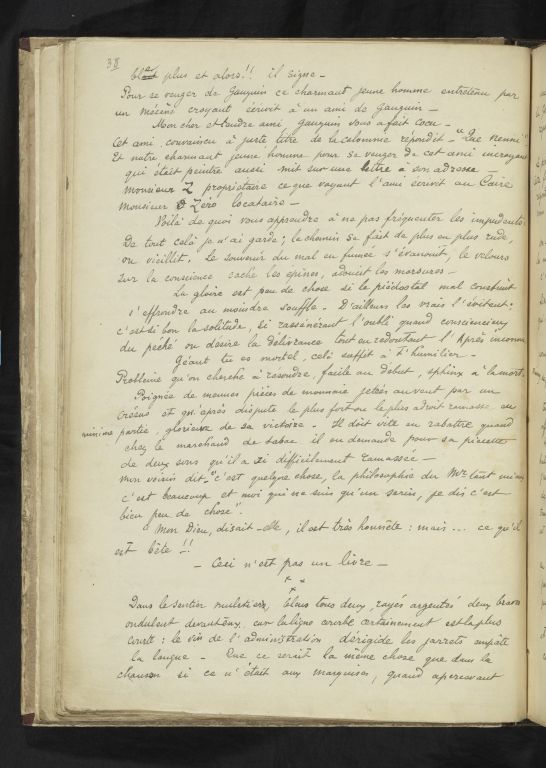 38
plus et alors!! il signe –
Pour se venger de Gauguin ce charmant jeune homme entretenu par
un mécène croyant écrivit à un ami de Gauguin –
Mon cher et tendre ami Gauguin vous a fait cocu –
Cet ami convaincu à juste titre de la calomnie répondit – "Que nenni"
Et notre charmant jeune homme pour se venger de cet ami incroyant
qui était peintre aussi mit sur une lettre à son adresse
Monsieur Z propriétaire ce que voyant l'ami écrivit au Caire
Monsieur Zéro locataire –
Voilà de quoi vous apprendre à ne pas fréquenter les impudents.
De tout celà je n'ai garde; le chemin se fait de plus en plus rude,
on vieillit. Le souvenir du mal en fumée s'évanouit, le velours
sur la conscience cache les épines, adoucit les morsures –
La gloire est peu de chose si le piédestal mal construit
s'effondre au moindre souffle – D'ailleurs les vrais l'évitent:
c'est si bon la solitude, si rassérénant l'oubli quand consciencieux
du péché on désire la délivrance tout en redoutant l'Après inconnu
Géant tu es mortel, celà suffit à t'humilier –
Problème qu'on cherche à résoudre, facile au début, sphinx à la mort.
Poignée de menues pièces de monnaie jetées au vent par un
Crésus et qu'après dispute le plus fort ou le plus adroit ramasse, en
minime partie, glorieux de sa victoire – Il doit vite en rabattre quand
chez le marchand de tabac il en demande pour sa piécette
de deux sous qu'il a si difficilement ramassée –
Mon voisin dit, "c'est quelque chose, la philosophie du Mr tant mieux
c'est beaucoup et moi qui ne suis qu'un serin, je dis c'est
bien peu de chose".
"Mon Dieu, disait-elle, il est très honnête: mais ... ce qu'il
est bête"!!
– Ceci n'est pas un livre –
Dans le sentier muletier, tous deux, rayés argentés deux
ondulent devant eux, car la ligne courbe certainement est la plus
courte: le vin de l'administration dérigide les jarrets empâte
la langue – Que ce serait la même chose que dans la
chanson si ce n'était aux marquises, quand apercevant